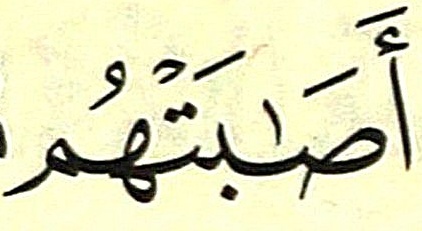 أَصَٰبَتْهُم